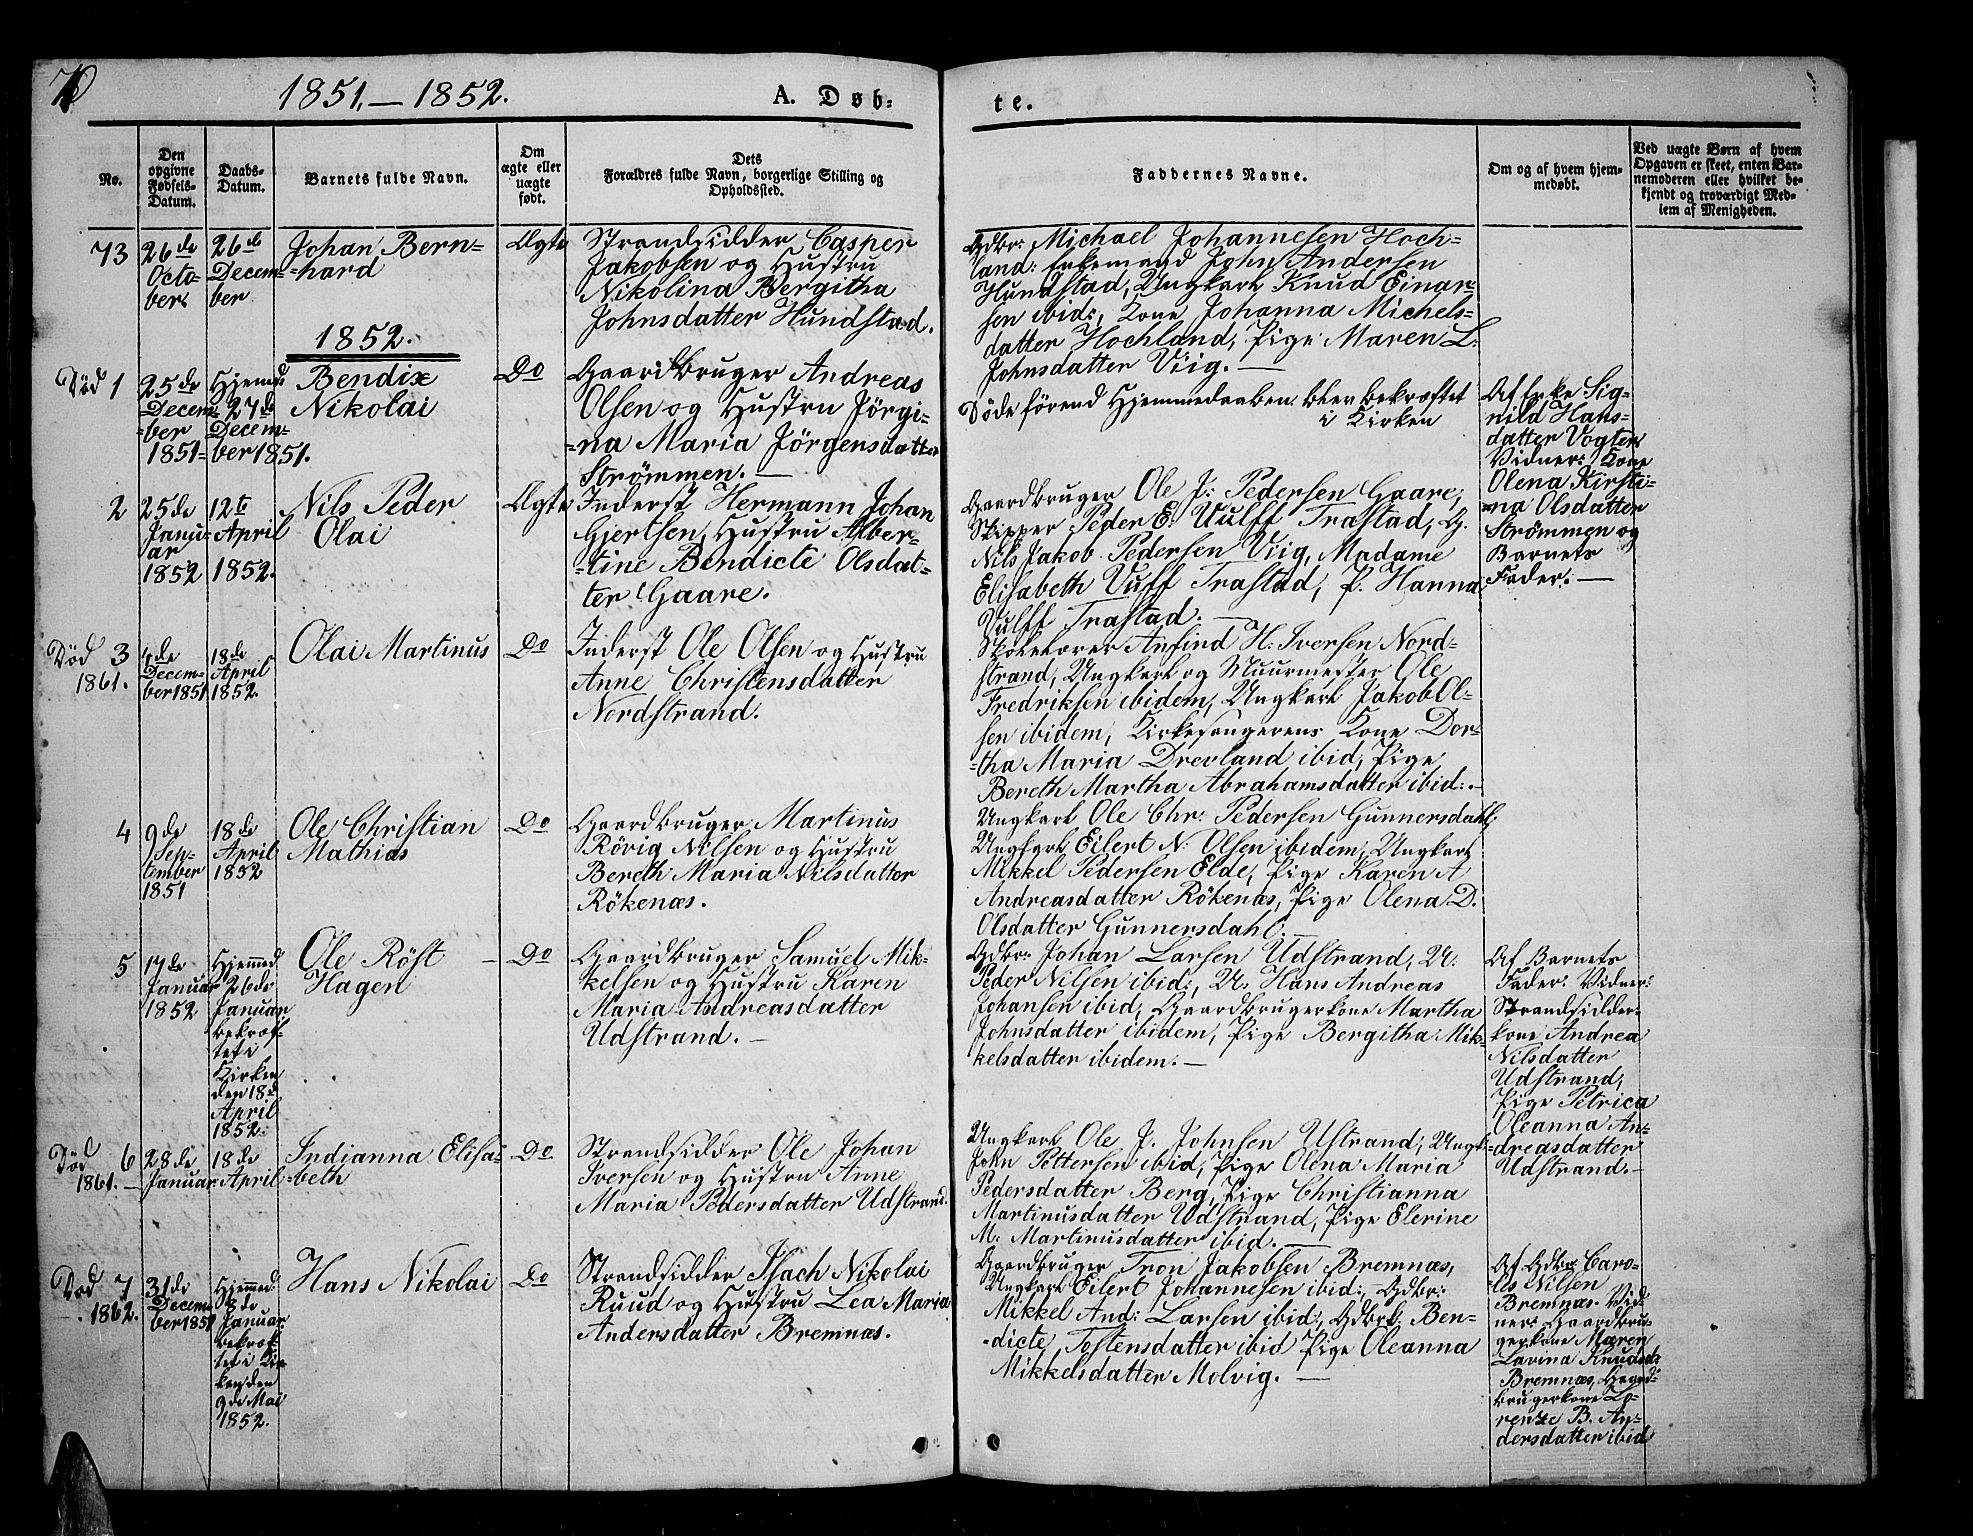 70
1851,—1852.
A. Døb-
te.
No.
Den
opgivne
Fødsels-
Datum.
Daabs-
Datum.
Barnets fulde Navn.
Om
ægte eller
uægte
født.
Dets
Forældres fulde Navn, borgerlige Stilling og
Opholdssted.
Faddernes Navne.
Om og af hvem hjem-
medøbt.
Ved uægte Børn af hvem
Opgaven er skeet, enten Bar-
nemoderen eller hvilket be-
kjendt og troværdigt Med-
lem af Menigheden.
73
26de
Octo-
ber
26de
Decem-
ber
Johan Bern-
=hard
Ægte
Strandsidder Casper
Jakobsen og Hustru
Nikolina Bergitha
Johnsdatter Hundstad.
Gdbr: Michael Johannesen Hoch-
land: Enkemand John Andersen
Hundstad, Ungkarl Knud Einar-
sen ibid:, Kone Johanna Michels-
datter Hochland, Pige Maren L.
Johnsdatter Viig. —
1852.
Död 1
25de
Decem-
=ber
1851-
Hjemd:
27de
Decem-
ber 1851.
Bendix
Nikolai
Do
Gaardbruger Andreas
Olsen og Hustru Jörgi-
=na Maria Jörgensdatter
Strömmen. —
Döde förend Hjemmedaaben blev bekræftet
i Kirken
Af Enke Sig-
nild Hans-
datter Vogter
Vidner: Kone
Olena Kirsti-
=na Olsdatter
Strömmen og
Barnets
Fader. —
2
25de
Janu-
ar
1852
12te
April
1852.
Nils Peder
Olai
Ægte
Inderst Hermann Johan
Gjertsen, Hustru Alber-
=tine Bendicte Olsdat-
ter Gaare.
Gaardbruger Ole J: Pedersen Gaare,
Skipper Peder E. Vulff Trastad, G.
Nils Jakob Pedersen Viig, Madame
Elisabeth Vulff Trastad, P. Hanna
Vulff Trastad. —
Död 3
1861.
4de
Decem-
ber 1851
18de
April
1852.
Olai Martinus
Do
Inderst Ole Olsen og Hustru
Anne Christensdatter
Nordstrand.
Skoleholder Anfind H. Iversen Nord-
strand, Ungkarl og Muurmester Ole
Fredriksen ibidem, Ungkarl Jakob Ol-
sen ibidem, Kirkesangerens Kone Dor-
=tha Maria Drevland ibid, Pige
Bereth Martha Abrahamsdatter ibid:.—
4
9de
Sep-
tember
1851
18de
April
1852
Ole Christian
Mathias
Do
Gaardbruger Martinus
Rövig Nilsen og Hustru
Bereth Maria Nilsdatter
Rökenæs.
Ungkarl Ole Chr: Pedersen Gunnersdahl,
Ungkarl Eilert N. Olsen ibidem, Ungkarl
Mikkel Pedersen Elde, Pige Karen A
Andreasdatter Rökenæs, Pige Olena D.
Olsdatter Gunnersdahl. —
5
17de
Januar
1852
Hjemmed.
26de
Januar
bekræf-
tet i
Kirken
den 18d
April
1852.
Ole Röst
Hagen
Do
Gaardbruger Samuel Mik-
kelsen og Hustru Karen
Maria Andreasdatter
Udstrand. —
Gdbr: Johan Larsen Udstrand, U.
Peder Nilsen ibid:, U. Hans Andreas
Johansen ibid, Gaardbrugerkone Martha
Johnsdatter ibidem, Pige Bergitha Mik-
kelsdatter ibidem. —
Af Barnets
Fader. Vidner:
Strandsidder-
kone Andrea
Nilsdatter
Udstrand,
Pige Petrica
Oleanna An-
=dreasdatter
Udstrand. —
Död 6
1861. —
28de
Januar
18de
April
Indianna Elisa-
=beth
Do
Strandsidder Ole Johan
Iversen og Hustru Anne
Maria Pedersdatter Udstrand.
Ungkarl Ole J. Johnsen Ustrand, Ungk:
John Pettersen ibid, Pige Olena Maria
Pedersdatter Berg, Pige Christianna
Martinusdatter Udstrand, Pige Elerine
M. Martinusdatter ibid. —
Död 7
1862.
31de
Decem-
ber 1851
Hjemmed:
8de
Januar
bekræf-
tet i Kir-
ken den
9de Mai
1852.
Hans Nikolai
Do
Strandsidder Isach Nikolai
Ruud og Hustru Lea Maria
Andersdatter Bremnæs.
Gaardbruger Tron Jakobsen Bremnæs,
Ungkarl Eilert Johannesen ibid:, Gdbr:
Mikkel And: Larsen ibid:, Gdbrk. Ben-
=dicte Tostensdatter ibid Pige Oleanna
Mikkelsdatter Molvig. —
Af Gdbr: Caro-
lus Nilsen
Bremnæs. Vid-
ner: Gaardbru-
gerkone Maren
Lavina Knudsdr
Bremnæs, Gaard-
brugerkone Lo-
rentze B. An-
dersdatter ibid